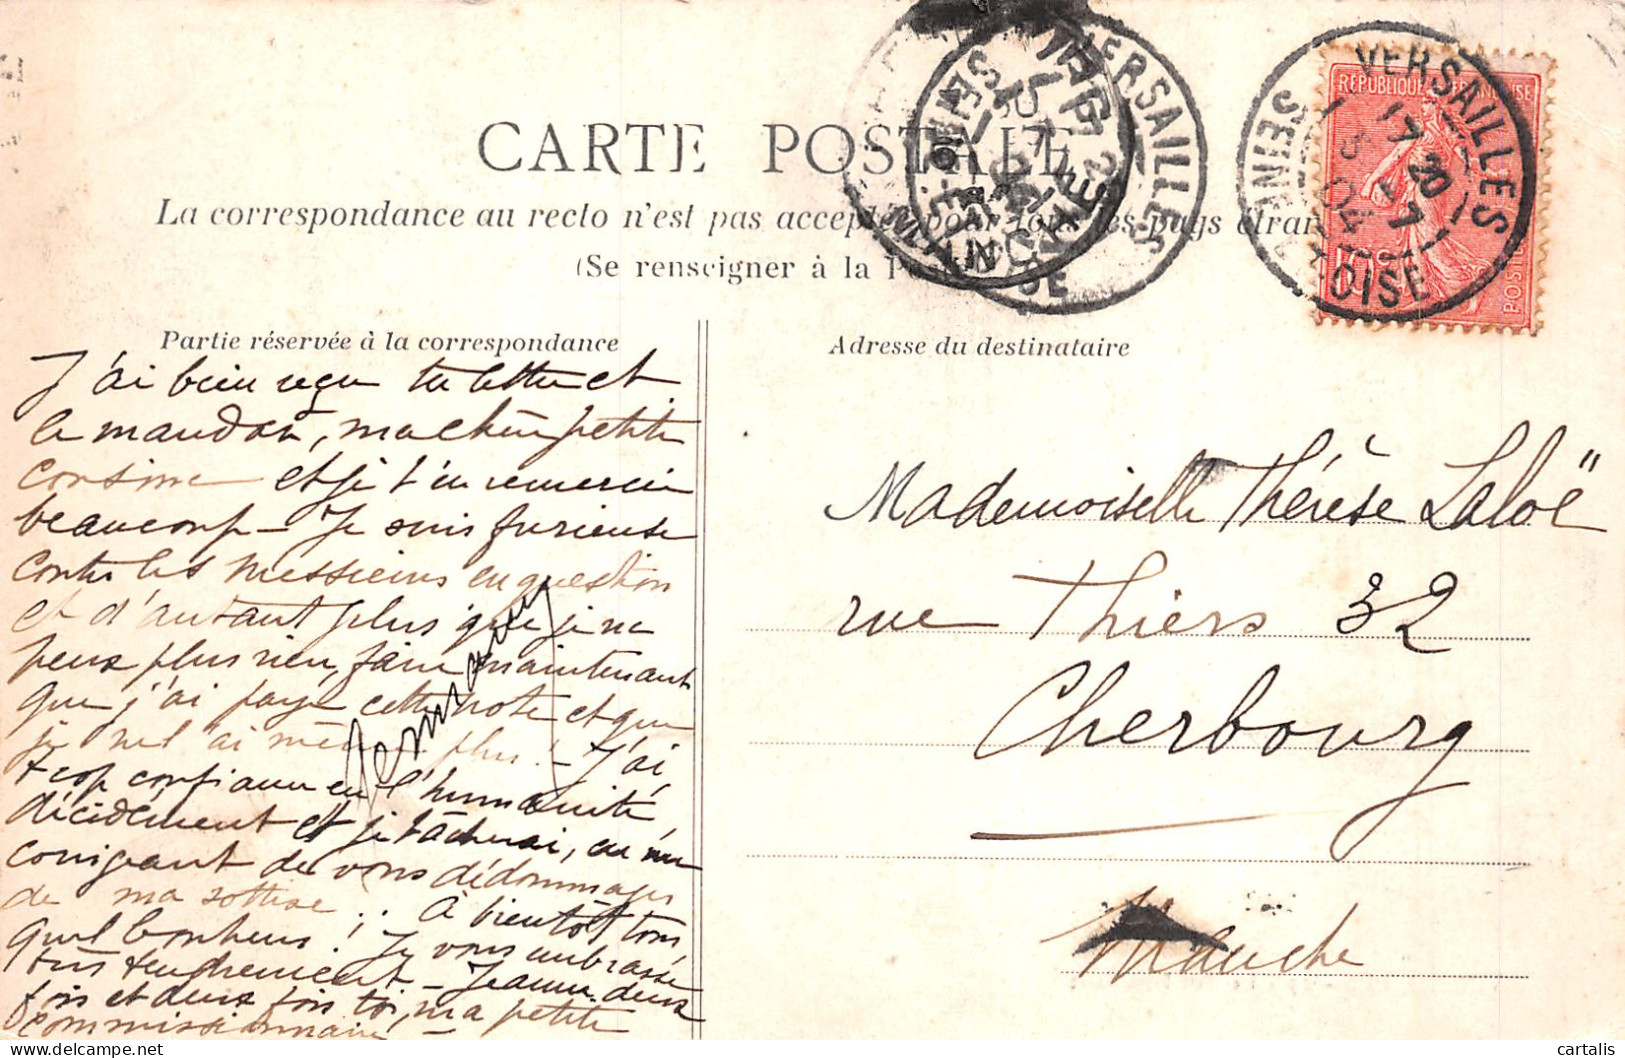 CARTE POSTALE
La correspondance au recto n'est pas acceptée pour tous les pays étran
(Se renseigner à la Poste)
VERSAILLES
SEINE-ET-OISE
VERSAILLES
17 20
15 - 7
04
SEINE ET OISE
RÉPUBLIQUE FRANÇAISE
10c
POSTES
Partie réservée à la correspondance
J'ai bien reçu ta lettre et
le mandat, ma chère petite
cousine et je t'en remercie
beaucoup - Je suis furieuse
contre les messieurs en question
et d'autant plus que je ne
peux plus rien faire maintenant
que j'ai payé cette note et que
je ne l'ai même plus! - J'ai
trop confiance en l'humanité
décidément et je tâcherai, en m'en
corrigeant de vous dédommager
de ma sottise!. À bientôt tous
quel bonheur! Je vous embrasse
tous tendrement - Jeanne. deux
fois et deux fois toi, ma petite
commissionnaire -
Adresse du destinataire
Mademoiselle Thérèse Laloë
rue Thiers 32
Cherbourg
Manche
cartalis